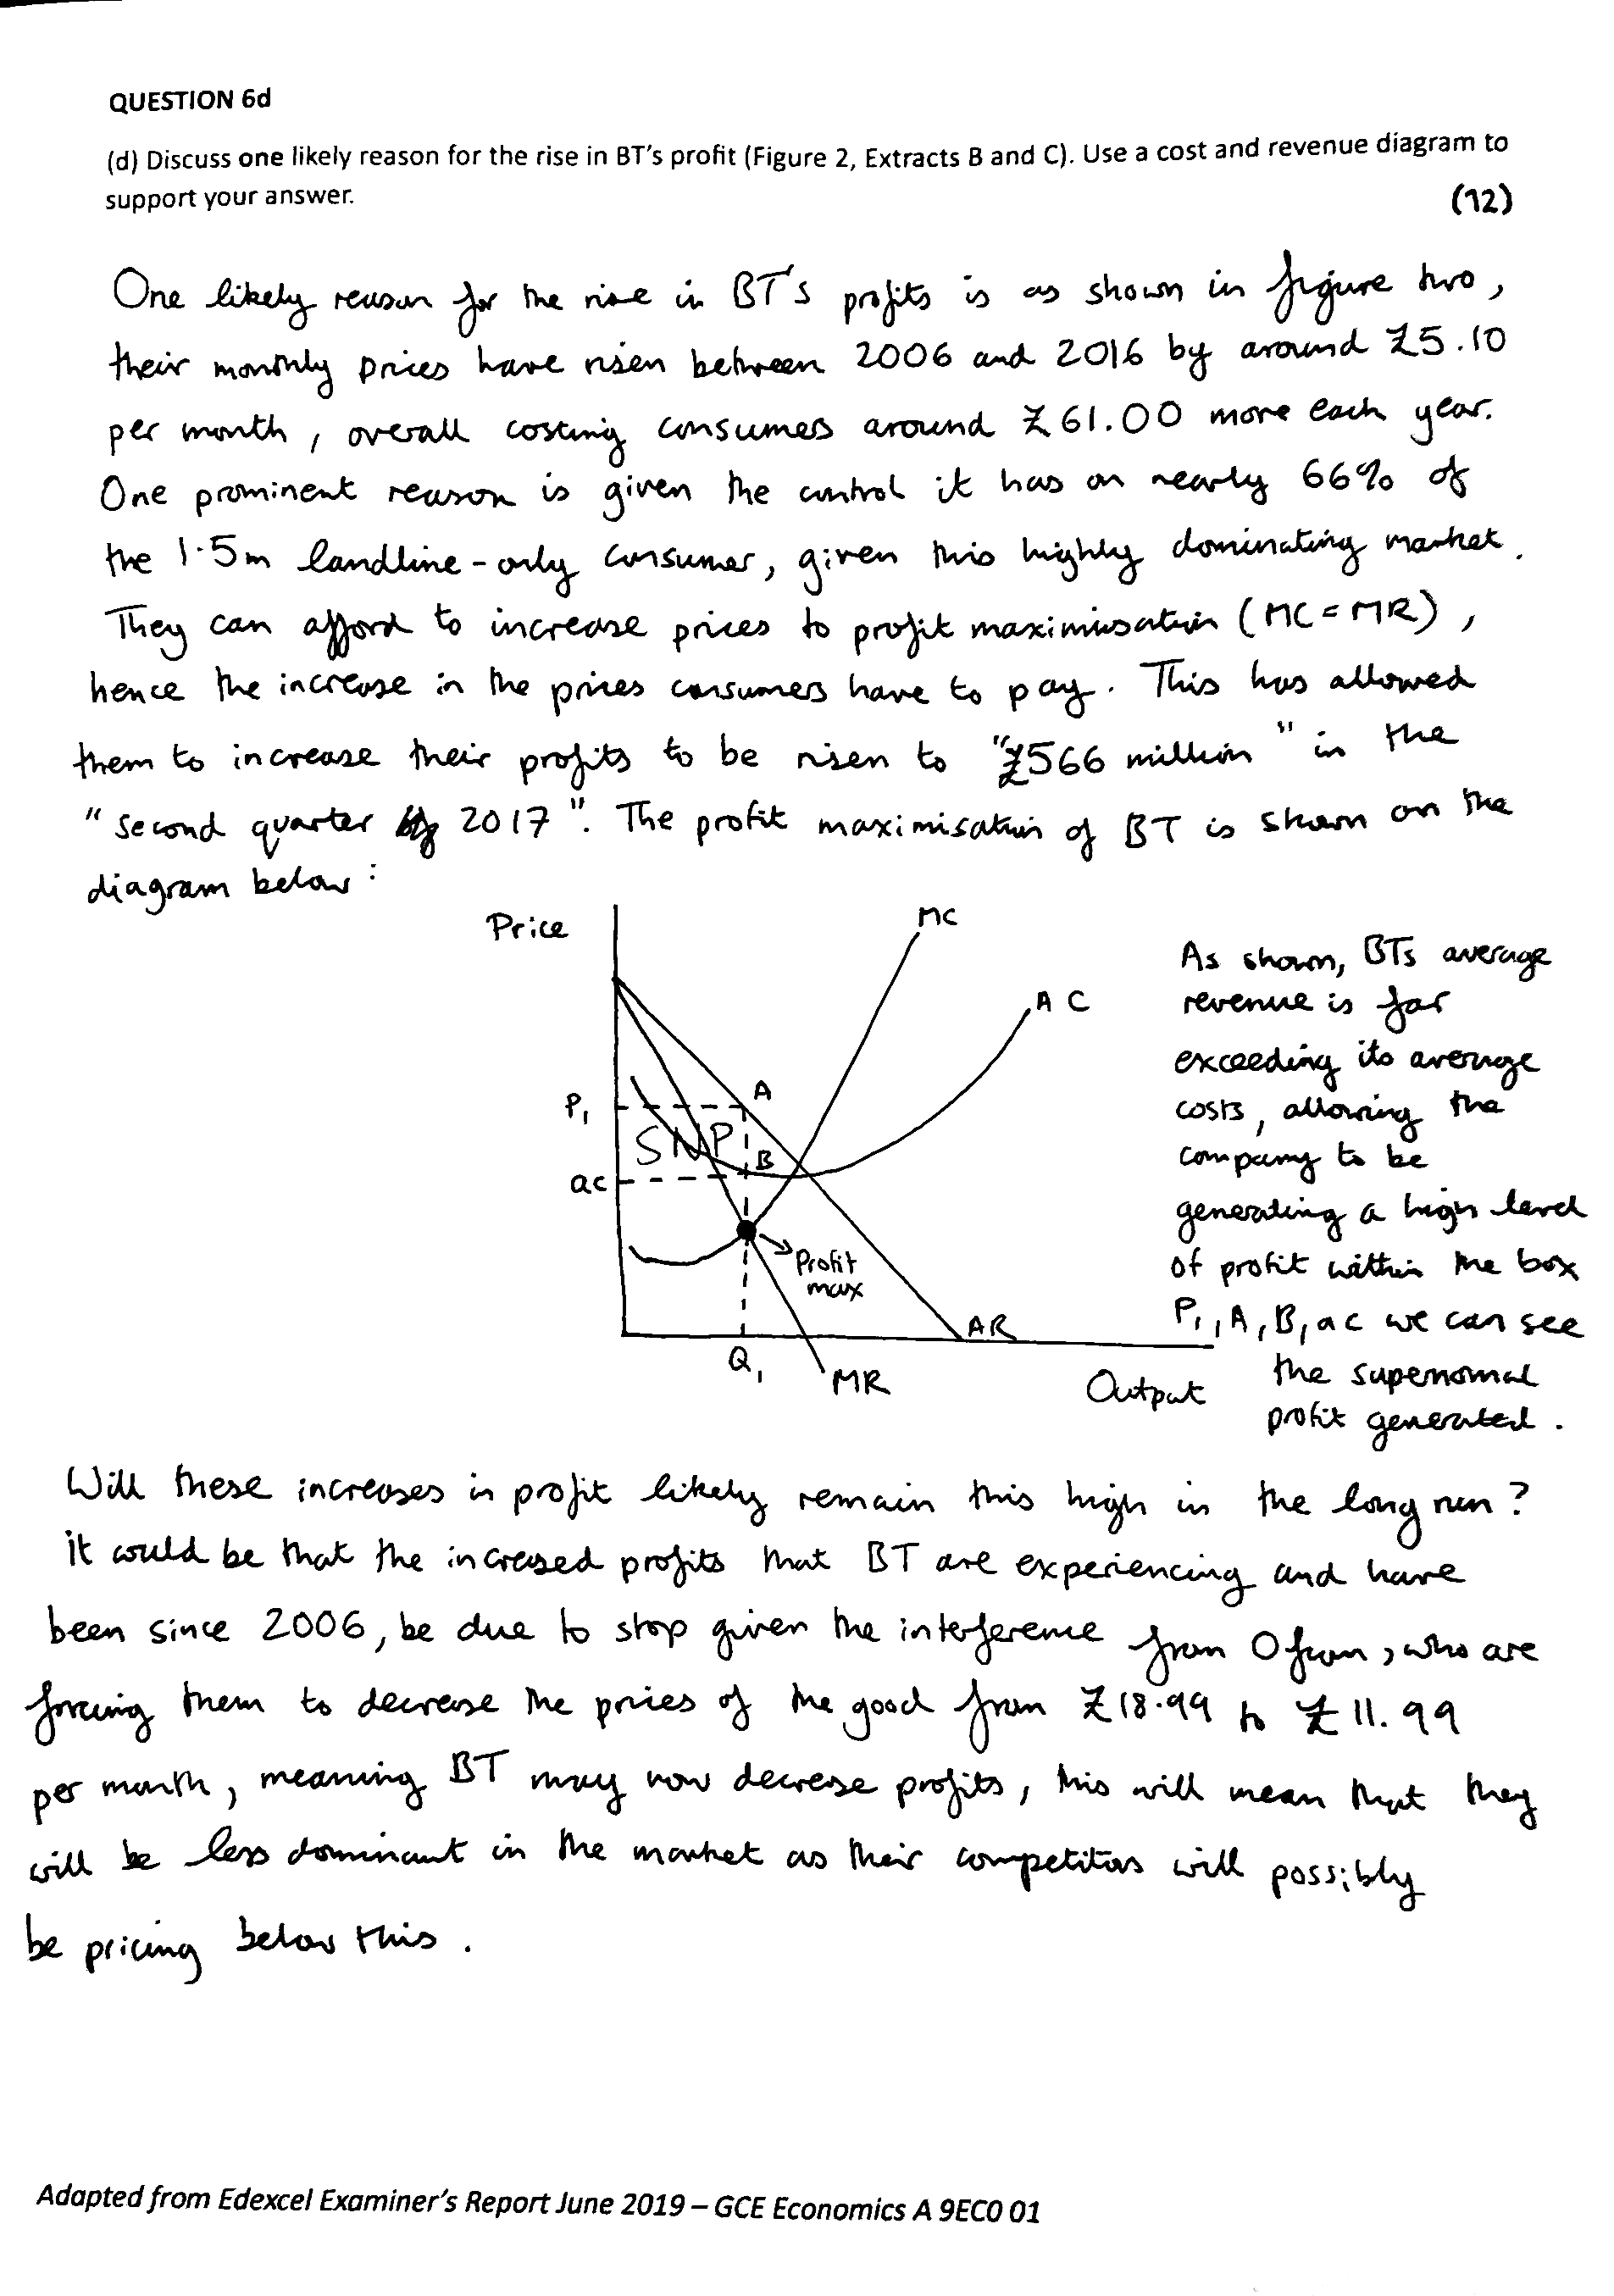 QUESTION 6d
(d) Discuss one likely reason for the rise in BT's profit (Figure 2, Extracts B and C). Use a cost and revenue diagram to
support your answer.
(12)
One likely reason for the rise in BT's profits is as shown in figure two,
their monthly prices have risen between 2006 and 2016 by around £5.10
per month, overall costing consumers around £61.00 more each year.
One prominent reason is given the control it has on nearly 66% of
the 1.5m landline-only consumer, given this highly dominating market.
They can afford to increase prices to profit maximisation (MC = MR),
hence the increase in the prices consumers have to pay. This has allowed
them to increase their profits to be risen to "£566 million" in the
"second quarter of 2017". The profit maximisation of BT is shown on the
diagram below:
Price
MC
AC
P1
A
SNP
B
ac
Profit
max
AR
Q1
MR
Output
As shown, BTs average
revenue is far
exceeding its average
costs, allowing the
company to be
generating a high level
of profit within the box
P1, A, B, ac we can see
the supernomal
profit generated.
Will these increases in profit likely remain this high in the long run?
it would be that the increased profits that BT are experiencing and have
been since 2006, be due to stop given the interference from Ofcom, who are
forcing them to decrease the prices of the good from £18.99 to £11.99
per month, meaning BT may now decrese profits, this will mean that they
will be less dominant in the market as their competitors will possibly
be pricing below this.
Adapted from Edexcel Examiner's Report June 2019 – GCE Economics A 9EC0 01